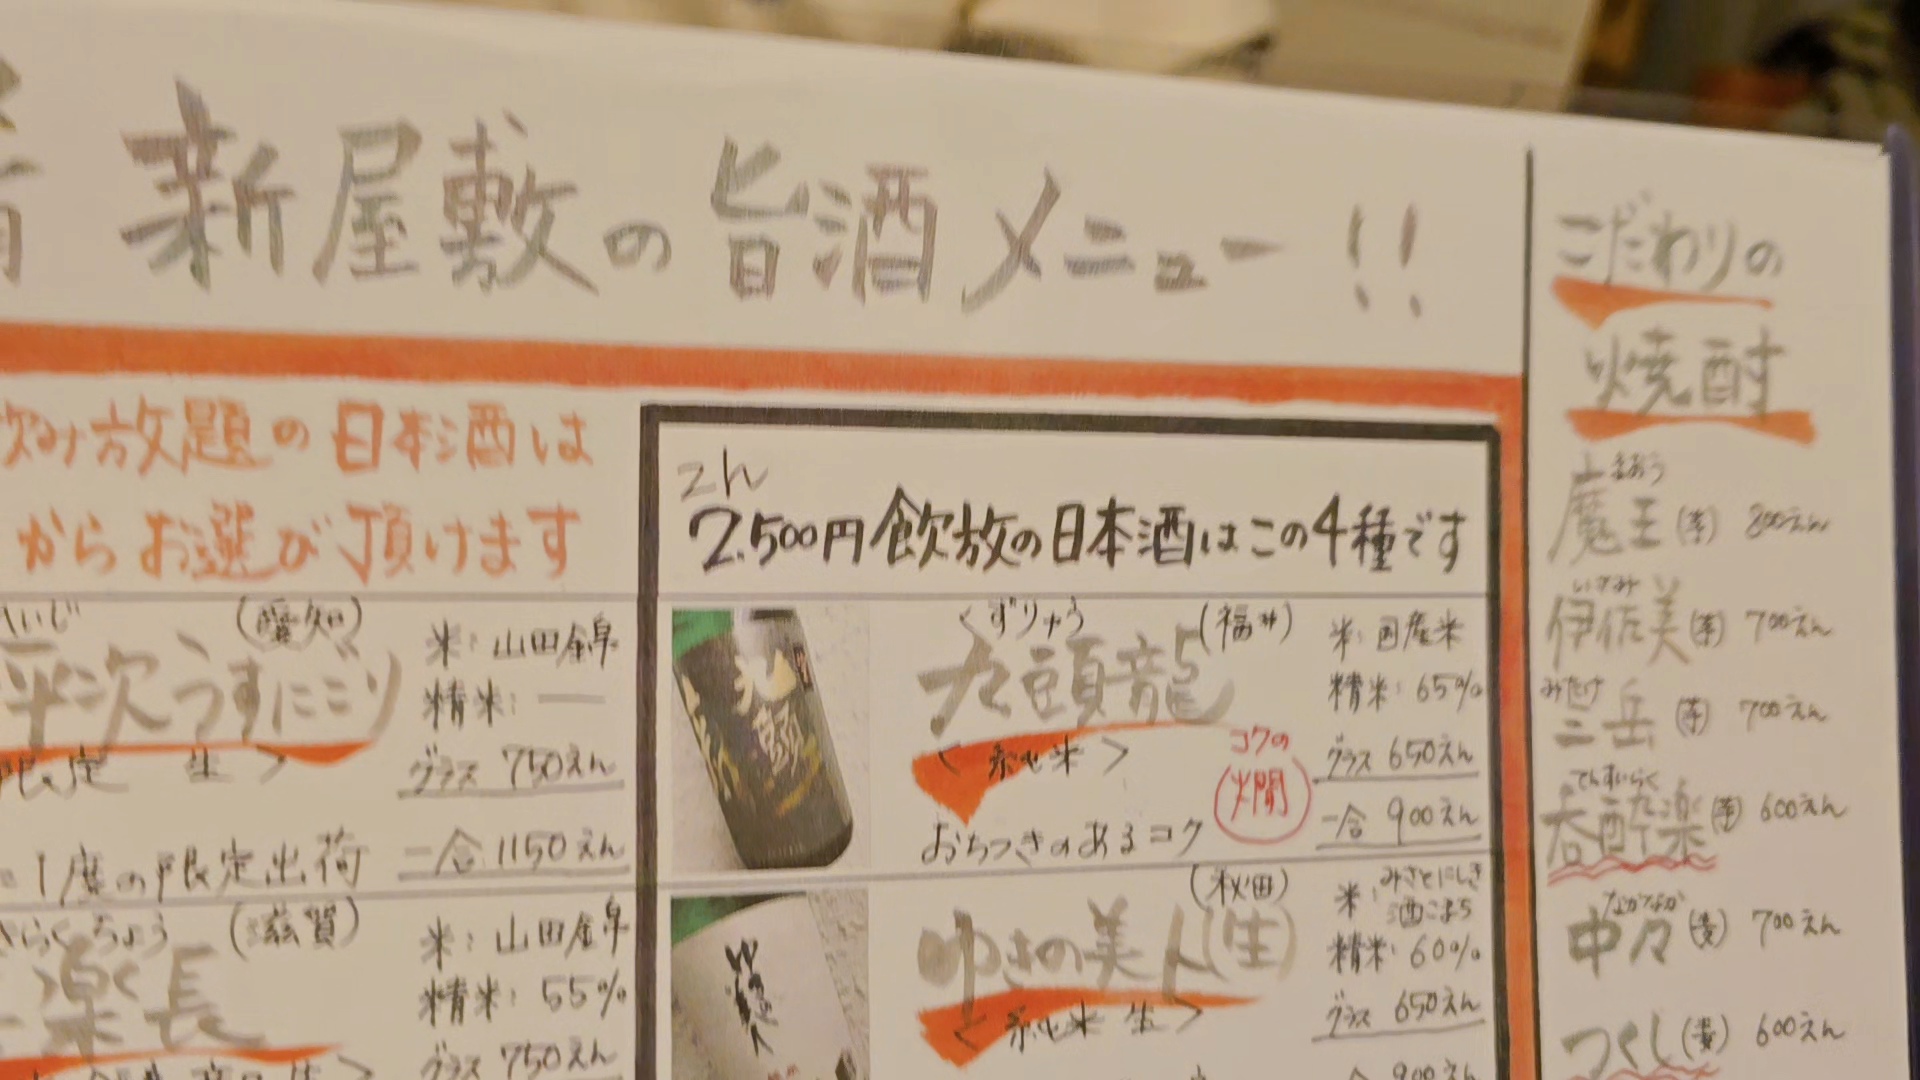 新屋敷の旨酒メニュー!!
飲み放題の日本酒は
からお選び頂けます
(愛知)
平次うすにごり
限定 生>
1度の限定出荷
米:山田錦
精米:—
グラス 750えん
一合 1150えん
らくちょう (滋賀)
楽長
米:山田錦
精米:55%
グラス 750えん
2.500円飲放の日本酒はこの4種です
くずりゅう (福井)
九頭龍
<純米>
コクの
燗
おちつきのあるコク
米:国産米
精米:65%
グラス 650えん
一合 900えん
(秋田)
ゆきの美人(生)
<純米 生>
米:みさとにしき
酒こまち
精米:60%
グラス 650えん
一合 900えん
こだわりの
焼酎
まおう
魔王(芋) 800えん
いさみ
伊佐美(芋) 700えん
みたけ
三岳(芋) 700えん
てんすいらく
呑酔楽(芋) 600えん
なかなか
中々(麦) 700えん
つくし(麦) 600えん